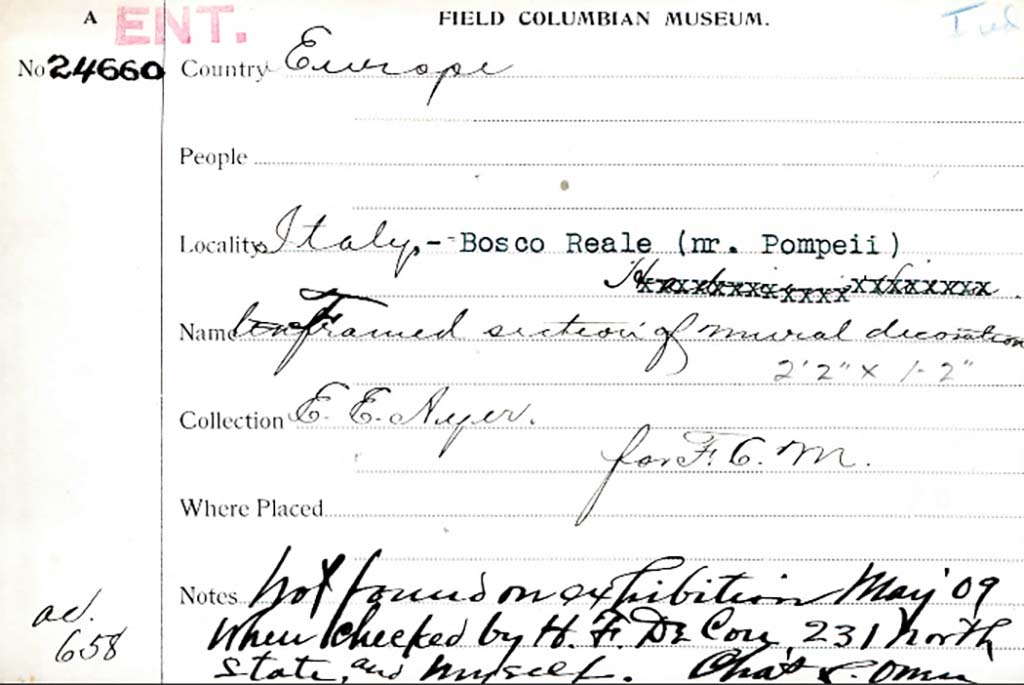 A ENT. FIELD COLUMBIAN MUSEUM.
No 24660 Country Europe
People
Locality Italy, - Bosco Reale (nr. Pompeii)
Name Framed section of mural decoration
2' 2" x 1-2"
Collection E. E. Ayer.
for F. C. M.
Where Placed
Notes Not found on exhibition May '09
ad. when checked by H. F. 231 North
658 State, and myself. Chas